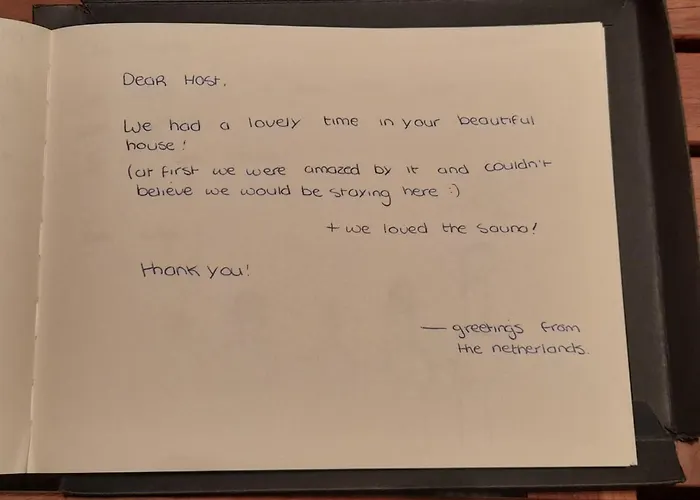 Dear Host,
We had a lovely time in your beautiful
house!
(at first we were amazed by it and couldn't
believe we would be staying here :)
+ we loved the sauna!
thank you!
— greetings from
the netherlands.